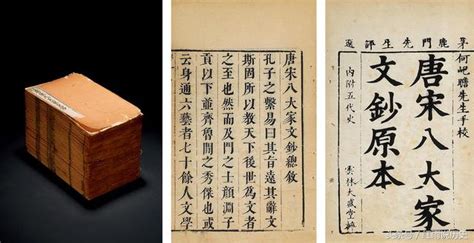 唐宋八大家文鈔總敘
孔子之繫易曰其旨遠其辭文
斯固所以教天下後世爲文者
之至也然而及門之士顏淵子
貢以下並齊魯間之秀傑也或
云身通六藝者七十餘人文學
茅鹿門先生評選
何屺瞻先生手校
唐宋八大家
文鈔原本
內附五代史
雲林大盛堂梓
头条号